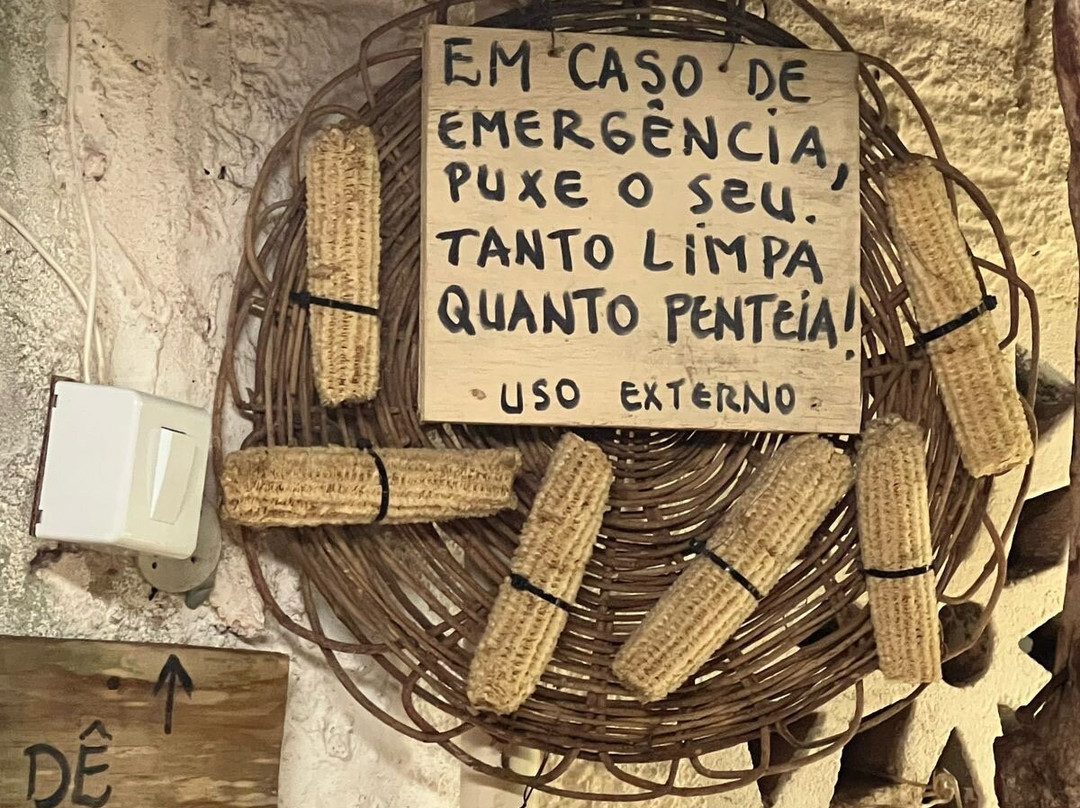 EM CASO DE
EMERGÊNCIA,
PUXE O SEU.
TANTO LIMPA
QUANTO PENTEIA!
USO EXTERNO
DÊ